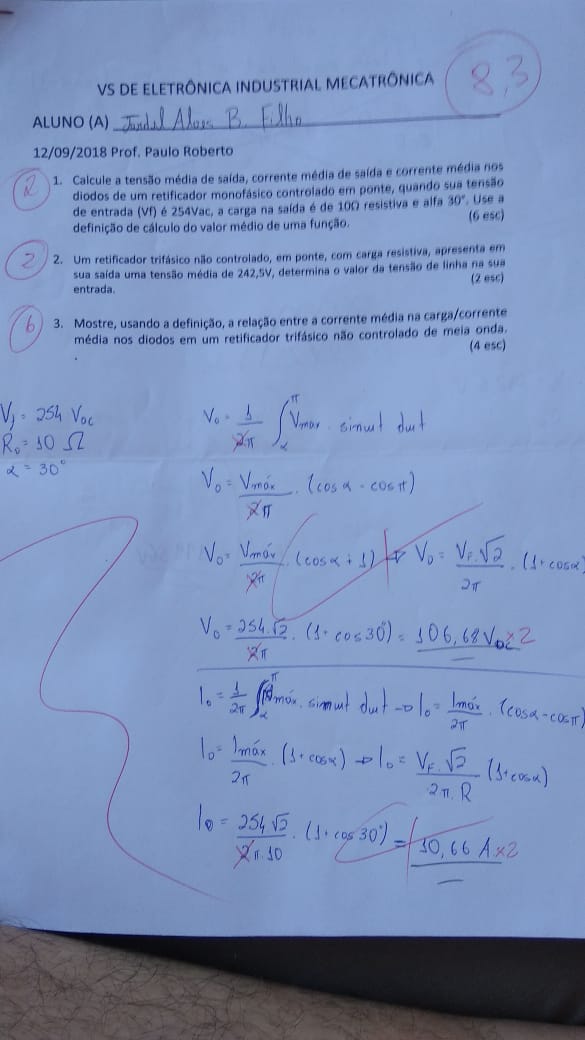 8,3
VS DE ELETRÔNICA INDUSTRIAL MECATRÔNICA
ALUNO (A) B. Filho
12/09/2018 Prof. Paulo Roberto
2
1. Calcule a tensão média de saída, corrente média de saída e corrente média nos
diodos de um retificador monofásico controlado em ponte, quando sua tensão
de entrada (Vf) é 254Vac, a carga na saída é de 10Ω resistiva e alfa 30°. Use a
definição de cálculo do valor médio de uma função. (6 esc)
2
2. Um retificador trifásico não controlado, em ponte, com carga resistiva, apresenta em
sua saída uma tensão média de 242,5V, determina o valor da tensão de linha na sua
entrada. (2 esc)
6
3. Mostre, usando a definição, a relação entre a corrente média na carga/corrente
média nos diodos em um retificador trifásico não controlado de meia onda.
. (4 esc)
R₀ = 10 Ω
α = 30°
V₀ = 1/2π ∫α^π Vmáx . sinwt dwt
V₀ = Vmáx/2π . (cosα - cosπ)
V₀ = Vmáx/2π . (cosα + 1) ⇒ V₀ = VF.√2/2π . (1+cosα)
V₀ = 254.√2/2π . (1+cos30°) = 106,68 VDC x2
I₀ = 1/2π ∫α^π Imáx . sinwt dwt → I₀ = Imáx/2π . (cosα-cosπ)
I₀ = Imáx/2π . (1+cosα) ⇒ I₀ = VF.√2/2π.R (1+cosα)
I₀ = 254√2/2π.10 . (1+cos30°) = 10,66 A x2